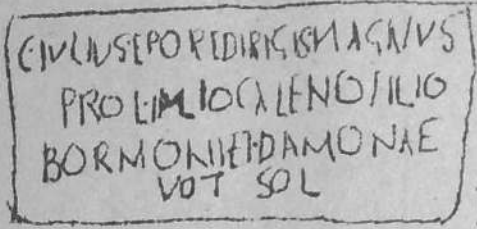 C·IVLIVS·EPOREDIRIGIS·F·MAGNVS
PRO·L·IVLIO CALENO FILIO
BORMONI·ET·DAMONAE
VOT SOL